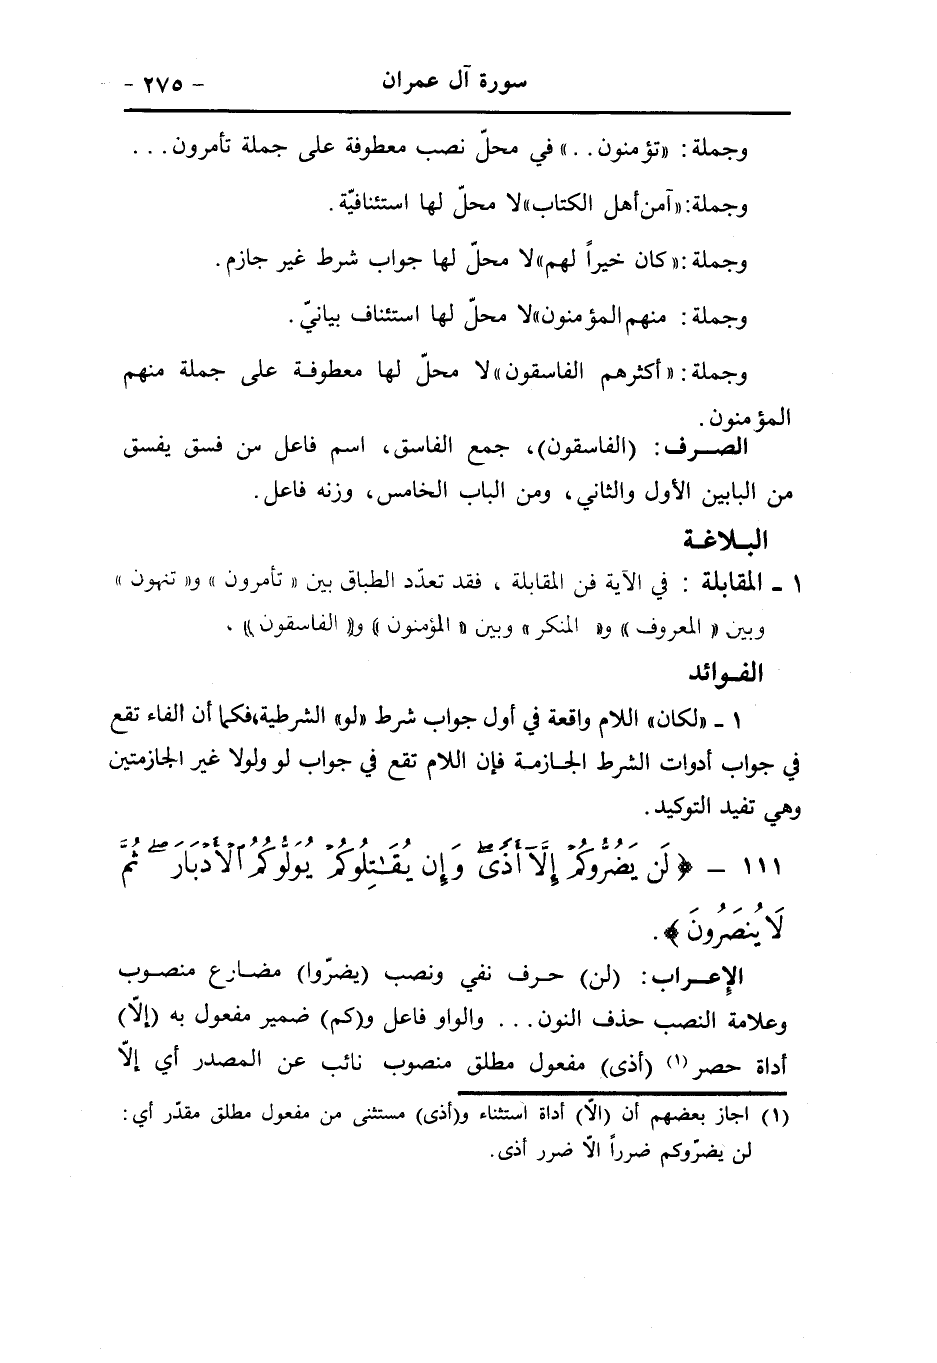 سورة آل عمران - ٢٧٥ -
وجملة: «تؤمنون . .» في محلّ نصب معطوفة على جملة تأمرون . . .
وجملة: «آمن أهل الكتاب» لا محلّ لها استئنافيّة .
وجملة: «كان خيراً لهم» لا محلّ لها جواب شرط غير جازم .
وجملة: منهم المؤمنون» لا محلّ لها استئناف بيانيّ .
وجملة: «أكثرهم الفاسقون» لا محلّ لها معطوفة على جملة منهم
المؤمنون .
الصرف: (الفاسقون)، جمع الفاسق، اسم فاعل من فسق يفسق
من البابين الأول والثاني، ومن الباب الخامس، وزنه فاعل .
البلاغة
١ ـ المقابلة : في الآية فن المقابلة ، فقد تعدّد الطباق بين « تأمرون » و« تنهون »
وبين « المعروف » و« المنكر » وبين « المؤمنون » و« الفاسقون » .
الفوائد
١ ـ «لكان» اللام واقعة في أول جواب شرط «لو» الشرطية، فكما أن الفاء تقع
في جواب أدوات الشرط الجازمة فإن اللام تقع في جواب لو ولولا غير الجازمتين
وهي تفيد التوكيد .
١١١ ـ ﴿لَن يَضُرُّوكُمْ إِلَّا أَذًى ۖ وَإِن يُقَٰتِلُوكُمْ يُوَلُّوكُمُ ٱلْأَدْبَارَ ۖ ثُمَّ
لَا يُنصَرُونَ﴾ .
الإعراب: (لن) حرف نفي ونصب (يضرّوا) مضارع منصوب
وعلامة النصب حذف النون . . . والواو فاعل و(كم) ضمير مفعول به (إلّا)
أداة حصر (١) (أذى) مفعول مطلق منصوب نائب عن المصدر أي إلّا
(١) اجاز بعضهم أن (الّا) أداة استثناء و(أذى) مستثنى من مفعول مطلق مقدّر أي :
لن يضرّوكم ضرراً الّا ضرر أذى .